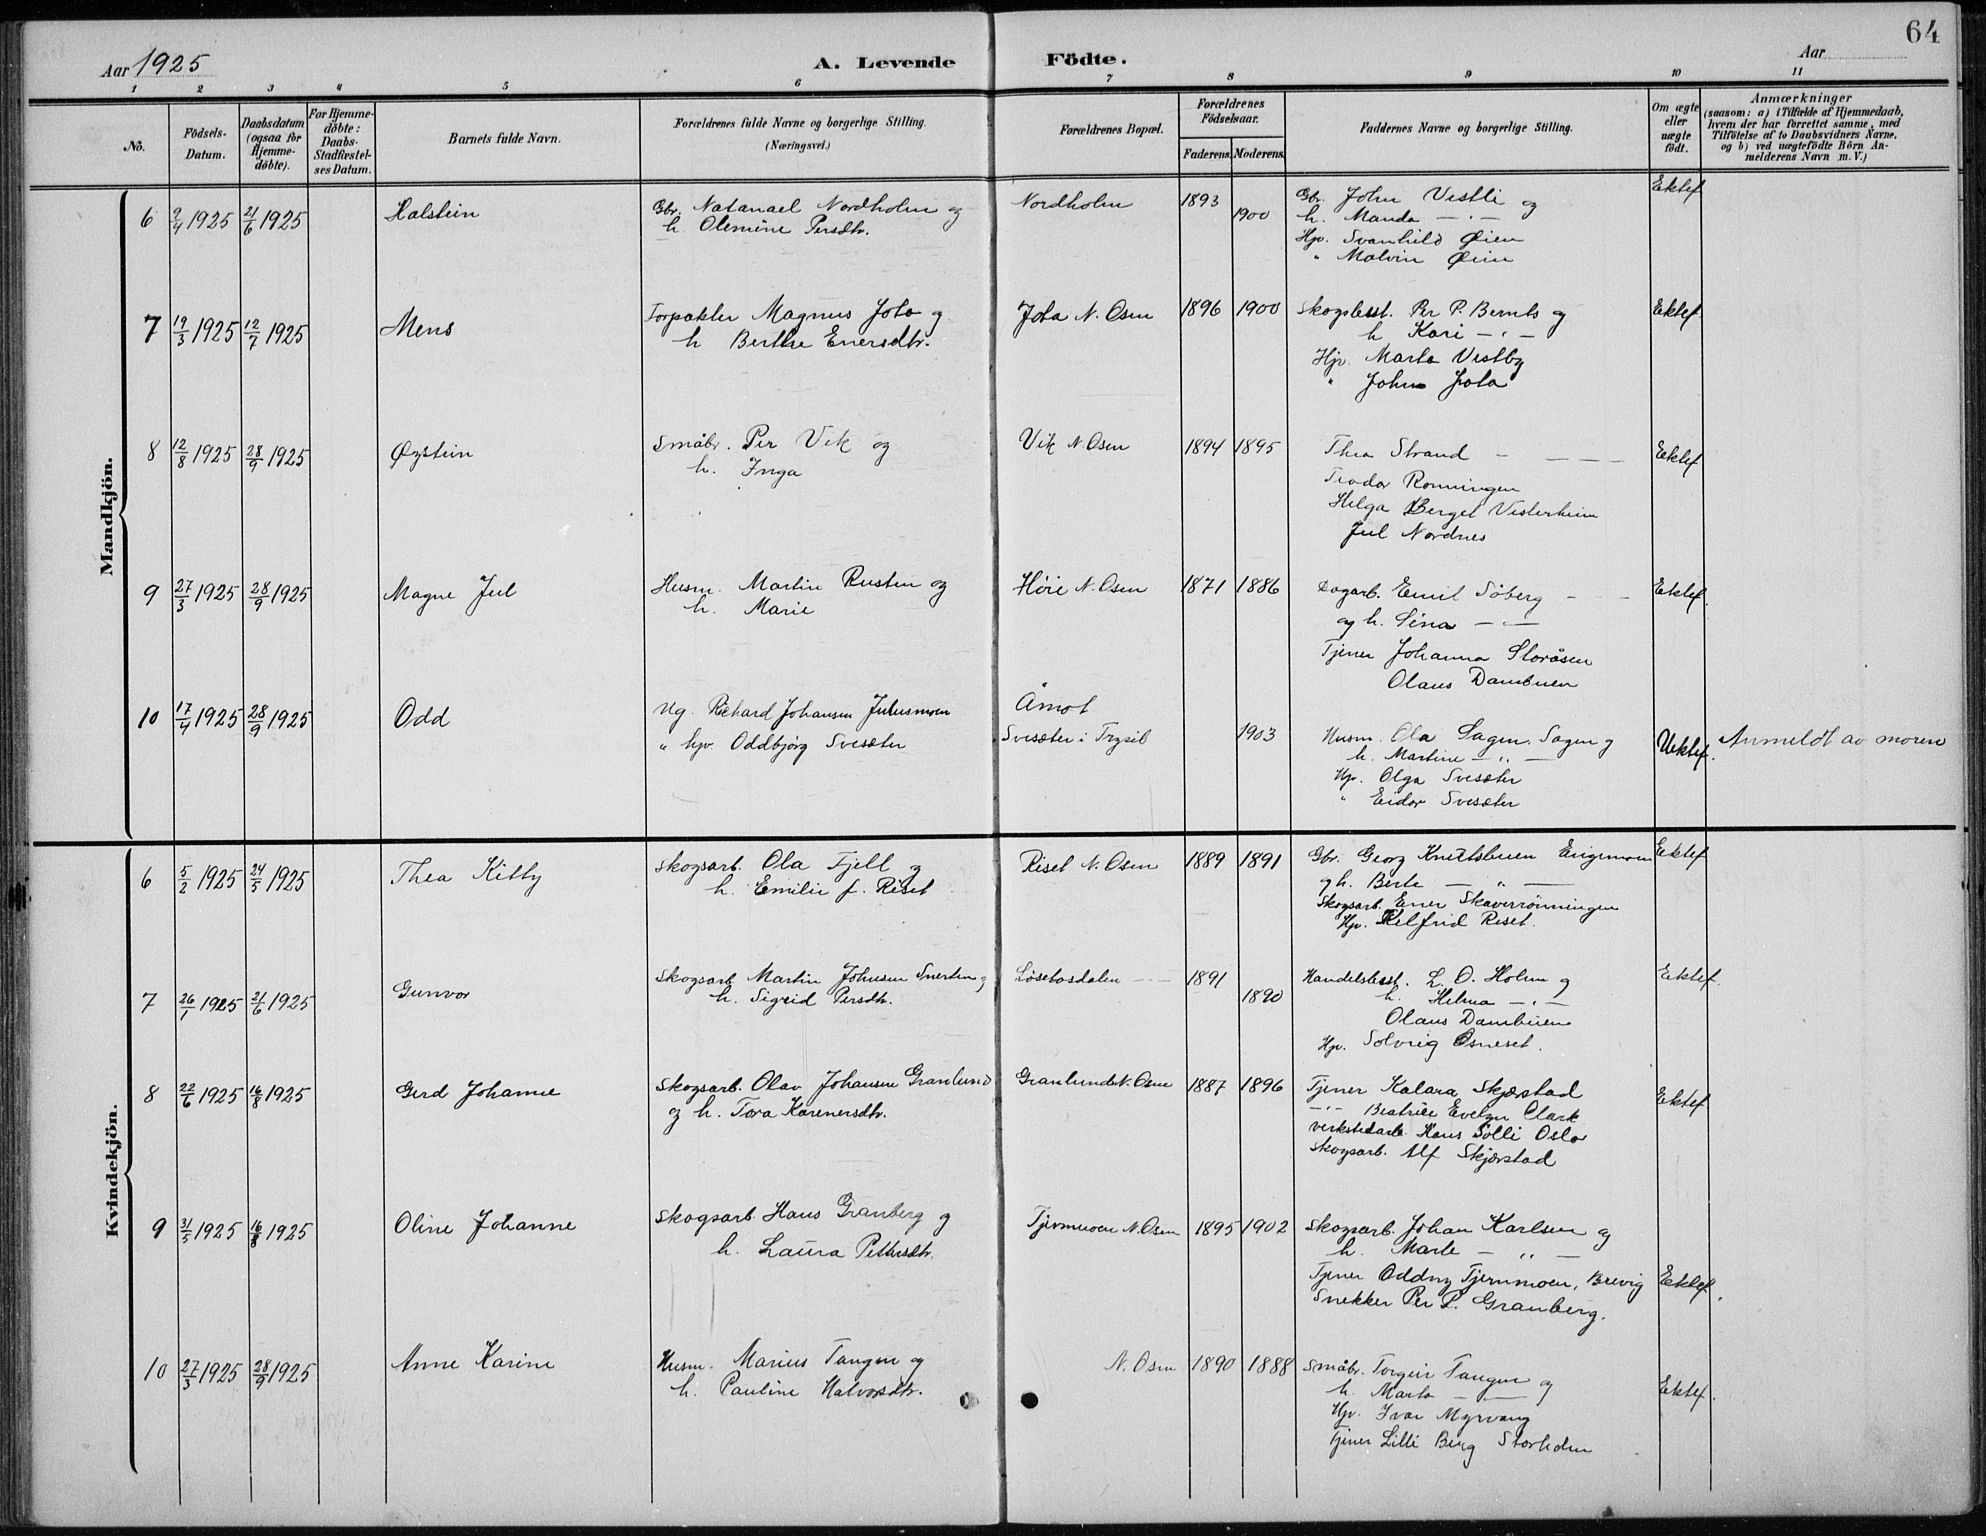 64
Aar 1925 A. Levende Födte. Aar
1 2 3 4 5 6 7 8 9 10 11
No. Födsels-Datum. Daabsdatum (ogsaa för Hjemme-döbte). For Hjemme-döbte: Daabs-Stadfæstel-ses Datum. Barnets fulde Navn. Forældrenes fulde Navne og borgerlige Stilling. (Næringsvei.) Forældrenes Bopæl. Forældrenes Födselsaar. Faderens. Moderens. Faddernes Navne og borgerlige Stilling. Om ægte eller uægte födt. Anmærkninger (saasom: a) i Tilfælde af Hjemmedaab, hvem der har forrettet samme, med Tilföielse af to Daabsvidners Navne, og b) ved uægtefödte Börn An-melderens Navn m. V.)
Mandkjön.
6 2/4 1925 21/6 1925 Halstein Gbr. Natanael Nordholm og Nordholm 1893 1900 Gbr. John Vestli og Ektef
h. Olemine Persdtr. h. Manda — " —
Hp. Svanhild Øien
" Malvin Øien
7 19/3 1925 12/7 1925 Mens Forpakter Magnus Jota og Jota N. Osen 1896 1900 Skogsbest. Per P. Bernts og Ektef
h Berthe Enersdtr. h Kari — " —
Hjp. Marta Vestby
" John Jota
8 12/8 1925 28/9 1925 Øystein Småbr. Per Vik og Vik N Osen 1894 1895 Thea Strand — — — Ektef
h. Inga Teodor Rønningen
Helga Berget Vesterheim
Jul Nordnes
9 27/3 1925 28/9 1925 Magne Jul Husm. Martin Rusten og Høie N. Osen 1871 1886 Dagarb. Emil Söberg — — Ektef.
h. Marie og h. Sina — " —
Tjener Johanna Storåsen
Olaus Dambuen
10 17/4 1925 28/9 1925 Odd Ug. Rikard Johansen Julusmoen Åmot 1903 Husm. Ola Sagen, Sagen g Uektef. Anmeldt av moren
" hp. Oddbjørg Svesæter Svesæter i Trysil h. Martine — " —
Hp. Olga Svesæter
" Eidar Svesæter
Kvindekjön.
6 5/2 1925 24/5 1925 Thea Kitty Skogsarb. Ola Fjell og Riset N. Osen 1889 1891 Gbr. Georg Knutsbuen Engemoen Ektef
h. Emilie f. Riset g h. Berte — " —
Skogsarb. Ener Skaverrönningen
Hp. Helfrid Riset.
7 26/1 1925 21/6 1925 Gunvor Skogsarb. Martin Johnsen Snerten g Løsetosdalen — 1891 1890 Handelsbest. L. O. Holm g Ektef.
h. Sigrid Persdtr. h. Helma — " —
Olaus Dambuen
Hp. Solveig Osneset.
8 22/6 1925 16/8 1925 Gerd Johanne Skogsarb. Olav Johansen Granlund Granlund N. Osen 1887 1896 Tjener Kalara Skjærstad Ektef
og h. Tora Karenersdtr. — " — Beatrice Evelyn Clark
Verkstedarb. Hans Solli Oslo
Skogsarb. Alf Skjærstad
9 31/5 1925 16/8 1925 Oline Johanne Skogsarb. Hans Granberg og Tjernmoen N. Osen 1895 1902 Skogsarb. Johan Karlsen og
h. Laura Pettersdtr. h. Marte — " —
Tjener Oddny Tjernmoen, Brevig Ektef.
Snekker Per P. Granberg.
10 27/3 1925 28/9 1925 Anne Karine Husm. Marius Tangen og N. Osen 1890 1888 Småbr. Torgeir Tangen og Ektef.
h. Pauline Halvorsdtr. h. Marta — " —
Hp. Ivar Myrvang
Tjener Lilli Berg Storholm